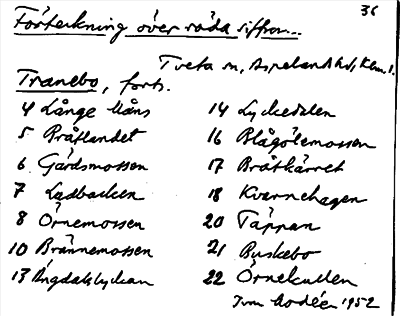 36
Förteckning över röda siffror...
Tveta sn, Aspelands hd, Klm. l.
Tranebo, forts.
4 Långe Måns
5 Bråtlandet
6 Gärdsmossen
7 Ladbacken
8 Örnemossen
10 Brännemossen
13 Ängdalslyckan
14 Lyckedalen
16 Blågölemossen
17 Bråtkärret
18 Kvarnehagen
20 Täppan
21 Buskebo
22 Örnekullen
1952